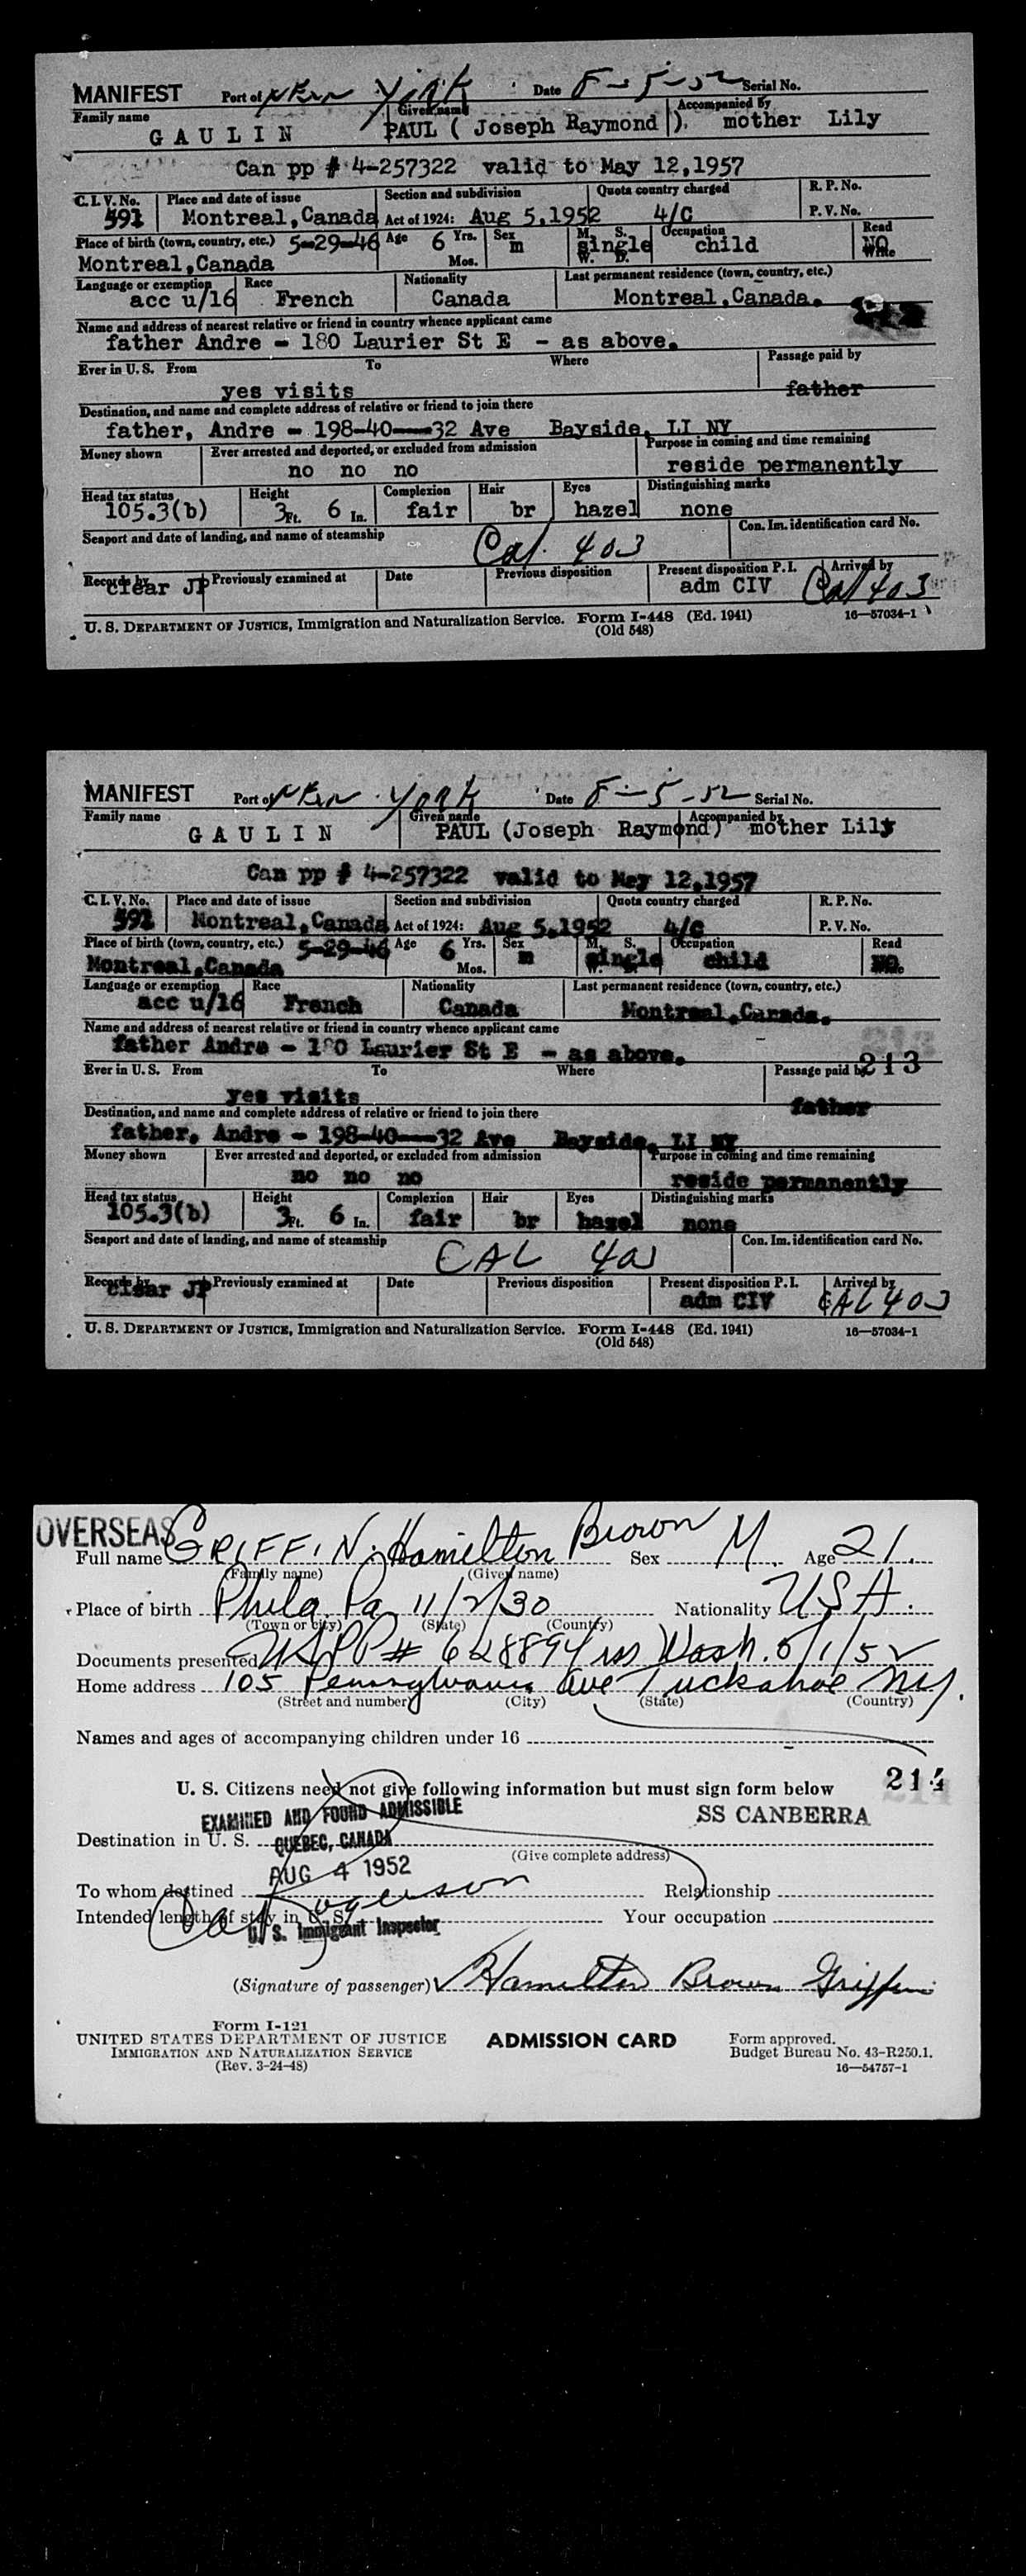 MANIFEST Port of New York Date 8-5-52 Serial No.
Family name Given name Accompanied by
GAULIN PAUL ( Joseph Raymond ). mother Lily
Can pp # 4-257322 valid to May 12,1957
C. I. V. No. Place and date of issue Section and subdivision Quota country charged R. P. No.
591 Montreal,Canada Act of 1924: Aug 5,1952 4/C P. V. No.
Place of birth (town, country, etc.) 5-29-46 Age 6 Yrs. Sex M. S. Occupation Read
Montreal,Canada Mos. m single W. D. child NO Write
Language or exemption Race Nationality Last permanent residence (town, country, etc.)
acc u/16 French Canada Montreal,Canada.
Name and address of nearest relative or friend in country whence applicant came
father Andre - 180 Laurier St E - as above.
Ever in U. S. From To Where Passage paid by
yes visits father
Destination, and name and complete address of relative or friend to join there
father, Andre - 198-40---32 Ave Bayside, LI NY
Money shown Ever arrested and deported, or excluded from admission Purpose in coming and time remaining
no no no reside permanently
Head tax status Height Complexion Hair Eyes Distinguishing marks
105.3(b) 3 Ft. 6 In. fair br hazel none
Seaport and date of landing, and name of steamship Cal. 403 Con. Im. identification card No.
Records by Previously examined at Date Previous disposition Present disposition P. I. Arrived by
clear JP adm CIV Cal 403
U. S. DEPARTMENT OF JUSTICE, Immigration and Naturalization Service. Form I-448 (Ed. 1941) 16—57034-1
(Old 548)
MANIFEST Port of New York Date 8-5-52 Serial No.
Family name Given name Accompanied by
GAULIN PAUL (Joseph Raymond) mother Lily
Can pp # 4-257322 valid to May 12,1957
C. I. V. No. Place and date of issue Section and subdivision Quota country charged R. P. No.
591 Montreal,Canada Act of 1924: Aug 5,1952 4/C P. V. No.
Place of birth (town, country, etc.) 5-29-46 Age 6 Yrs. Sex M. S. Occupation Read
Montreal,Canada Mos. m single W. D. child NO
Language or exemption Race Nationality Last permanent residence (town, country, etc.)
acc u/16 French Canada Montreal,Canada.
Name and address of nearest relative or friend in country whence applicant came
father Andre - 180 Laurier St E - as above.
Ever in U. S. From To Where Passage paid by 213
yes visits father
Destination, and name and complete address of relative or friend to join there
father, Andre - 198-40---32 Ave Bayside, LI NY
Money shown Ever arrested and deported, or excluded from admission Purpose in coming and time remaining
no no no reside permanently
Head tax status Height Complexion Hair Eyes Distinguishing marks
105.3(b) 3 Ft. 6 In. fair br hazel none
Seaport and date of landing, and name of steamship CAL 403 Con. Im. identification card No.
Records by Previously examined at Date Previous disposition Present disposition P. I. Arrived by
clear JP adm CIV CAL 403
U. S. DEPARTMENT OF JUSTICE, Immigration and Naturalization Service. Form I-448 (Ed. 1941) 16—57034-1
(Old 548)
OVERSEAS
Full name GRIFFIN, Hamilton Brown Sex M. Age 21.
(Family name) (Given name)
Place of birth Phila Pa 11/2/30 Nationality USA.
(Town or city) (State) (Country)
Documents presented USPP# 628894 iss Wash. 5/1/52
Home address 105 Pennsylvania Ave Tuckahoe NY.
(Street and number) (City) (State) (Country)
Names and ages of accompanying children under 16
214
U. S. Citizens need not give following information but must sign form below
EXAMINED AND FOUND ADMISSIBLE SS CANBERRA
Destination in U. S. QUEBEC, CANADA
(Give complete address)
AUG 4 1952
To whom destined Relationship
Intended length of stay in U. S. Your occupation
U. S. Immigrant Inspector
(Signature of passenger) Hamilton Brown Griffin
Form I-121
UNITED STATES DEPARTMENT OF JUSTICE ADMISSION CARD Form approved.
IMMIGRATION AND NATURALIZATION SERVICE Budget Bureau No. 43-R250.1.
(Rev. 3-24-48) 16—54757-1